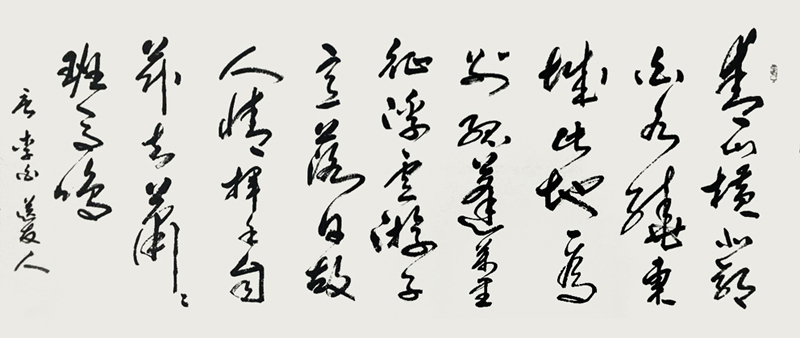 青山横北郭
白水绕东
城此地一为
别孤蓬万里
征浮云游子
意落日故
人情挥手自
兹去萧々
班马鸣
唐李白送友人